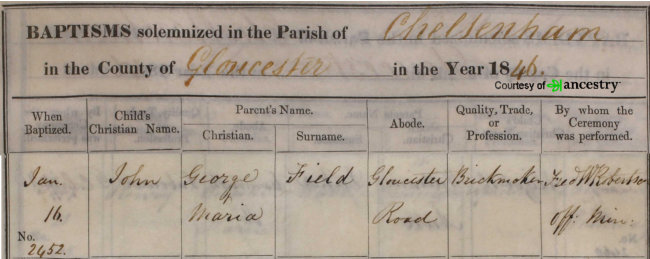 BAPTISMS solemnized in the Parish of Cheltenham
in the County of Gloucester in the Year 1846.
Courtesy of ancestry
When Baptized.
Child's Christian Name.
Parent's Name.
Christian.
Surname.
Abode.
Quality, Trade, or Profession.
By whom the Ceremony was performed.
Jan. John George Field Gloucester Brickmaker Fred W Robertson
16. Maria Road off: Min:
No.
2452.